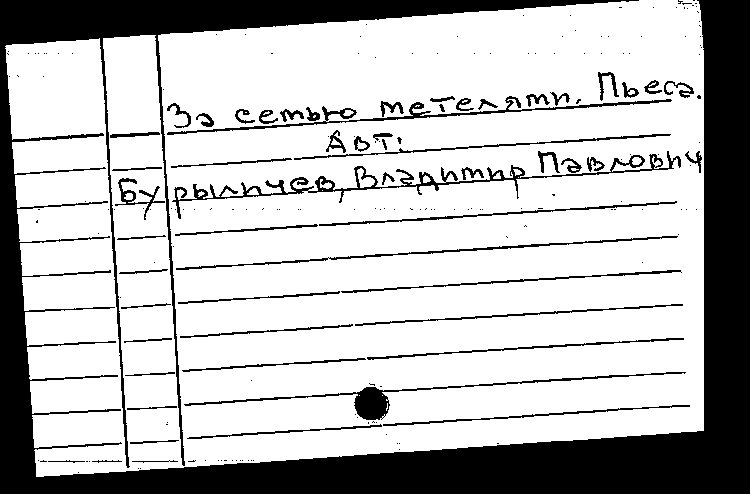 За семью метелями. Пьеса.
Авт:
Бурыличев, Владимир Павлович